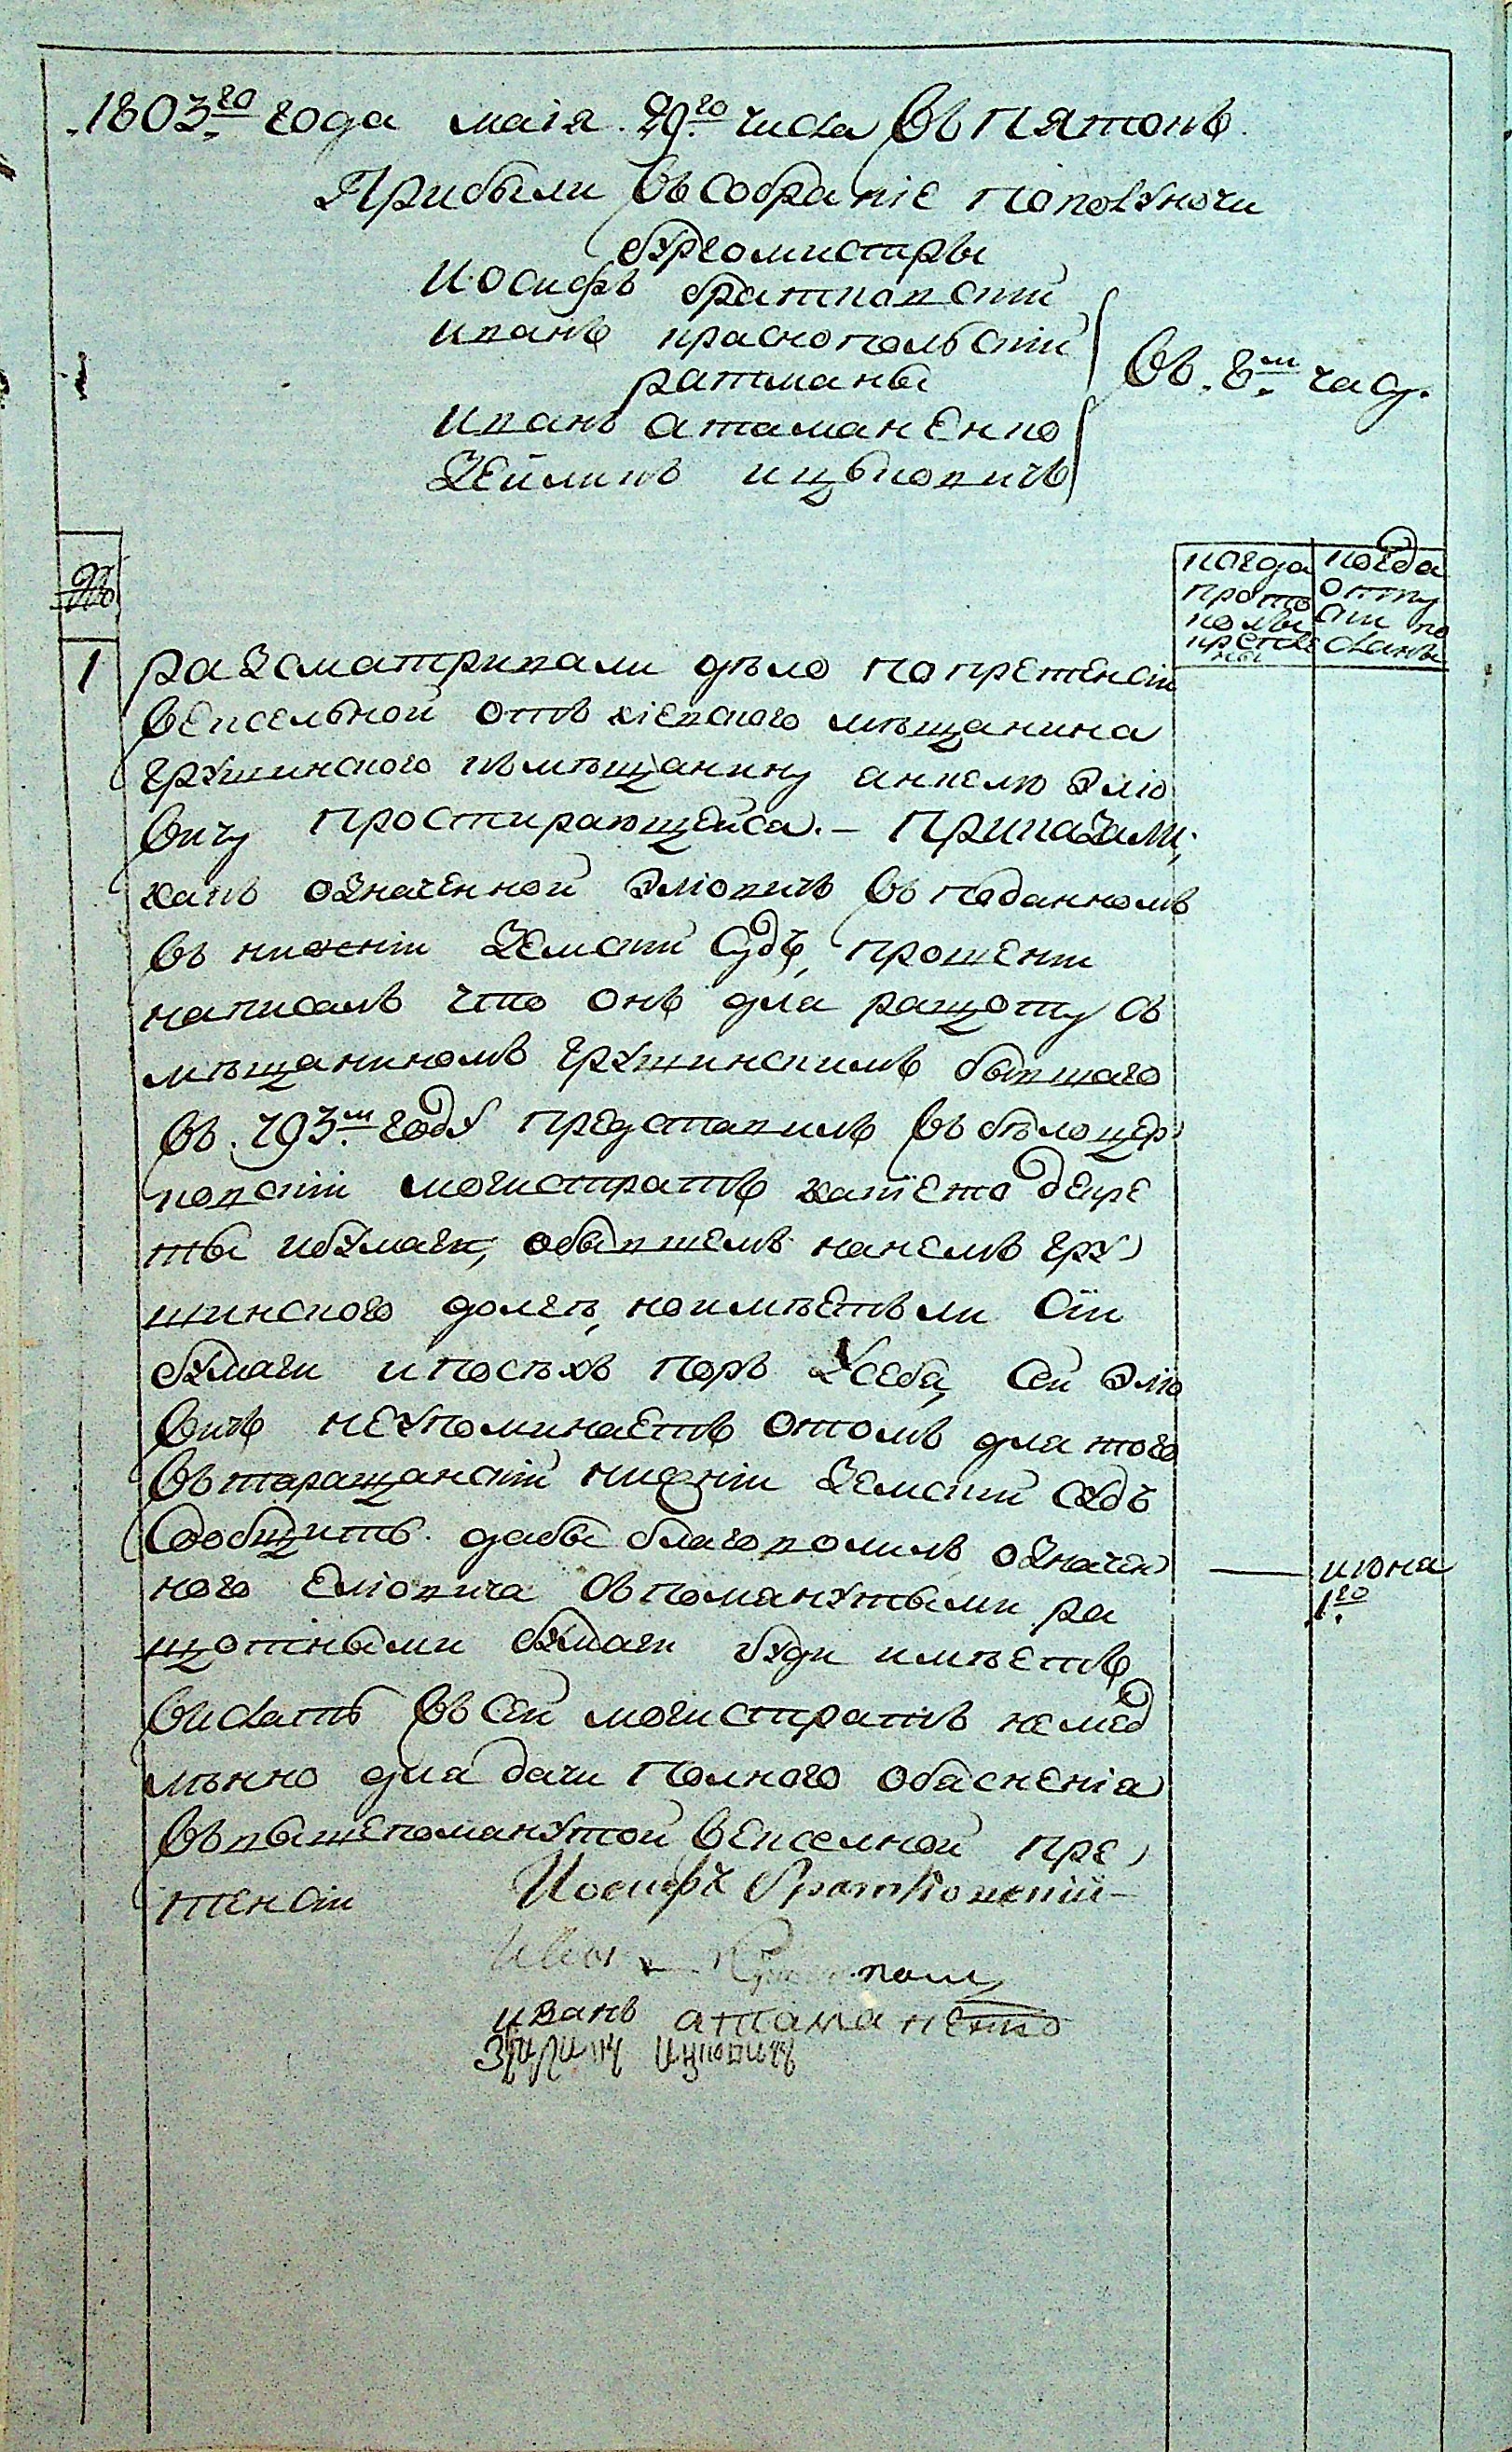 1803го года маія 29го числа Въ пятокъ
Прибыли Въ собраніе По полуночи
бургомистры
Иосифъ братковскій
иванъ краснопольскій
ратманы
Въ 8м часу.
иванъ атаманенко
Зейликъ ицьковичъ
№
когда прото колы
когда отпу ски по сланы
1
разсматривали дѣло По претенсіи
Вексельной отъ кіевского мѣщанина
грушинского къ мѣщанину анкелю эліо
Вичу Простирающейса.— Приказали,
какъ означенной эліовичъ Въ поданномъ
Въ нижній Земскій Судъ, прошеніи
написалъ что онъ для ращоту съ
мѣщаниномъ грушинскимъ бывшаго
Въ 793м году представилъ Въ бѣлоцер
ковскій могистратъ какіето декре
ты и бумаги, обывшемъ на немъ гру
шинского долгъ, но имѣетъ ли Сіи
бумаги и посѣхъ поръ у себа, Сей эліо
Вичъ неупоминаетъ отомъ для того
Въ таращанскій нижній Земскій судъ
Сообщить дабы благоволилъ означен
ного еліовича Съ поманутыми ра
щотными бумаги буди имѣетъ
Вислать Въ Сей могистратъ немед
лѣнно для дачи Полного обасненіа
Въ вышепоманутой Вексельной пре
тенсіи
июна 1го
Иосифъ Братковскій
иванъ атаманенко
Зейликъ Ицковичъ